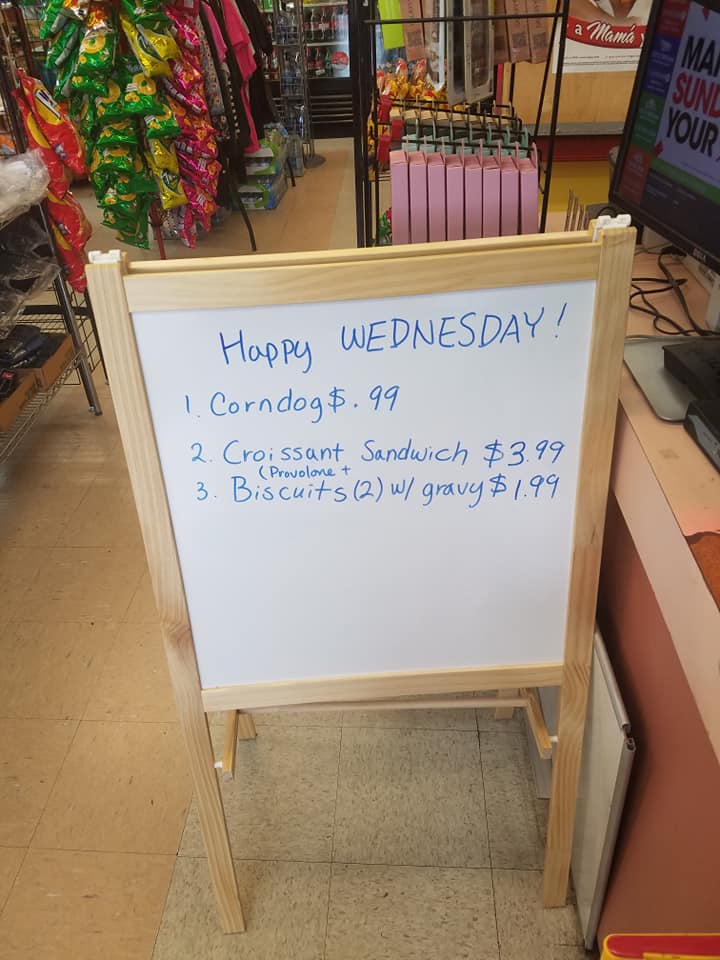 a Mamá
MA
SUND
YOUR
Happy WEDNESDAY!
1. Corndog $.99
2. Croissant Sandwich $3.99
(Provolone +
3. Biscuits (2) w/ gravy $1.99